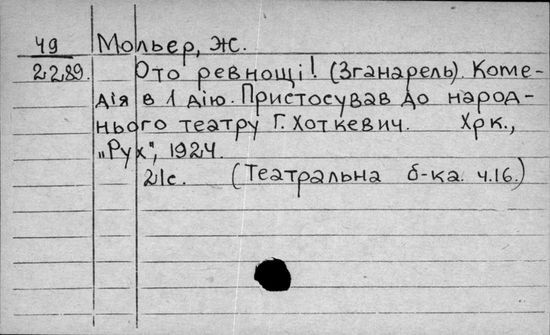 49 Мольер, Ж.
2289. Ото ревнощі! (Зганарель). Коме-
дія в 1 дію. Пристосував до народ-
нього театру Г. Хоткевич. Хрк.,
„Рух", 1924.
21с. (Театральна б-ка. ч.16.)